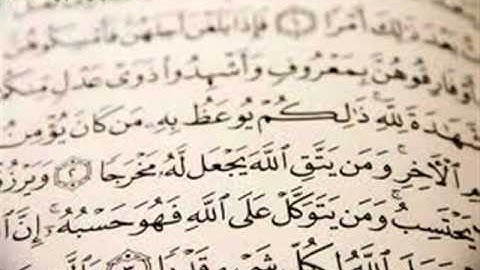 بَعْدَ ذَٰلِكَ أَمْرًا ۝١ فَإِذَا بَلَغْنَ أَجَلَهُنَّ فَأَمْسِكُوهُنَّ
أَوْ فَارِقُوهُنَّ بِمَعْرُوفٍ وَأَشْهِدُوا۟ ذَوَىْ عَدْلٍ مِّنكُمْ
ٱلشَّهَٰدَةَ لِلَّهِ ۚ ذَٰلِكُمْ يُوعَظُ بِهِۦ مَن كَانَ يُؤْمِنُ
ٱلْءَاخِرِ ۚ وَمَن يَتَّقِ ٱللَّهَ يَجْعَل لَّهُۥ مَخْرَجًا ۝٢ وَيَرْزُقْ
يَحْتَسِبُ ۚ وَمَن يَتَوَكَّلْ عَلَى ٱللَّهِ فَهُوَ حَسْبُهُۥٓ ۚ إِنَّ ٱل
جَعَلَ ٱللَّهُ لِكُلِّ شَىْءٍ قَدْرًا ۝٣ وَٱلَّٰٓـِٔى